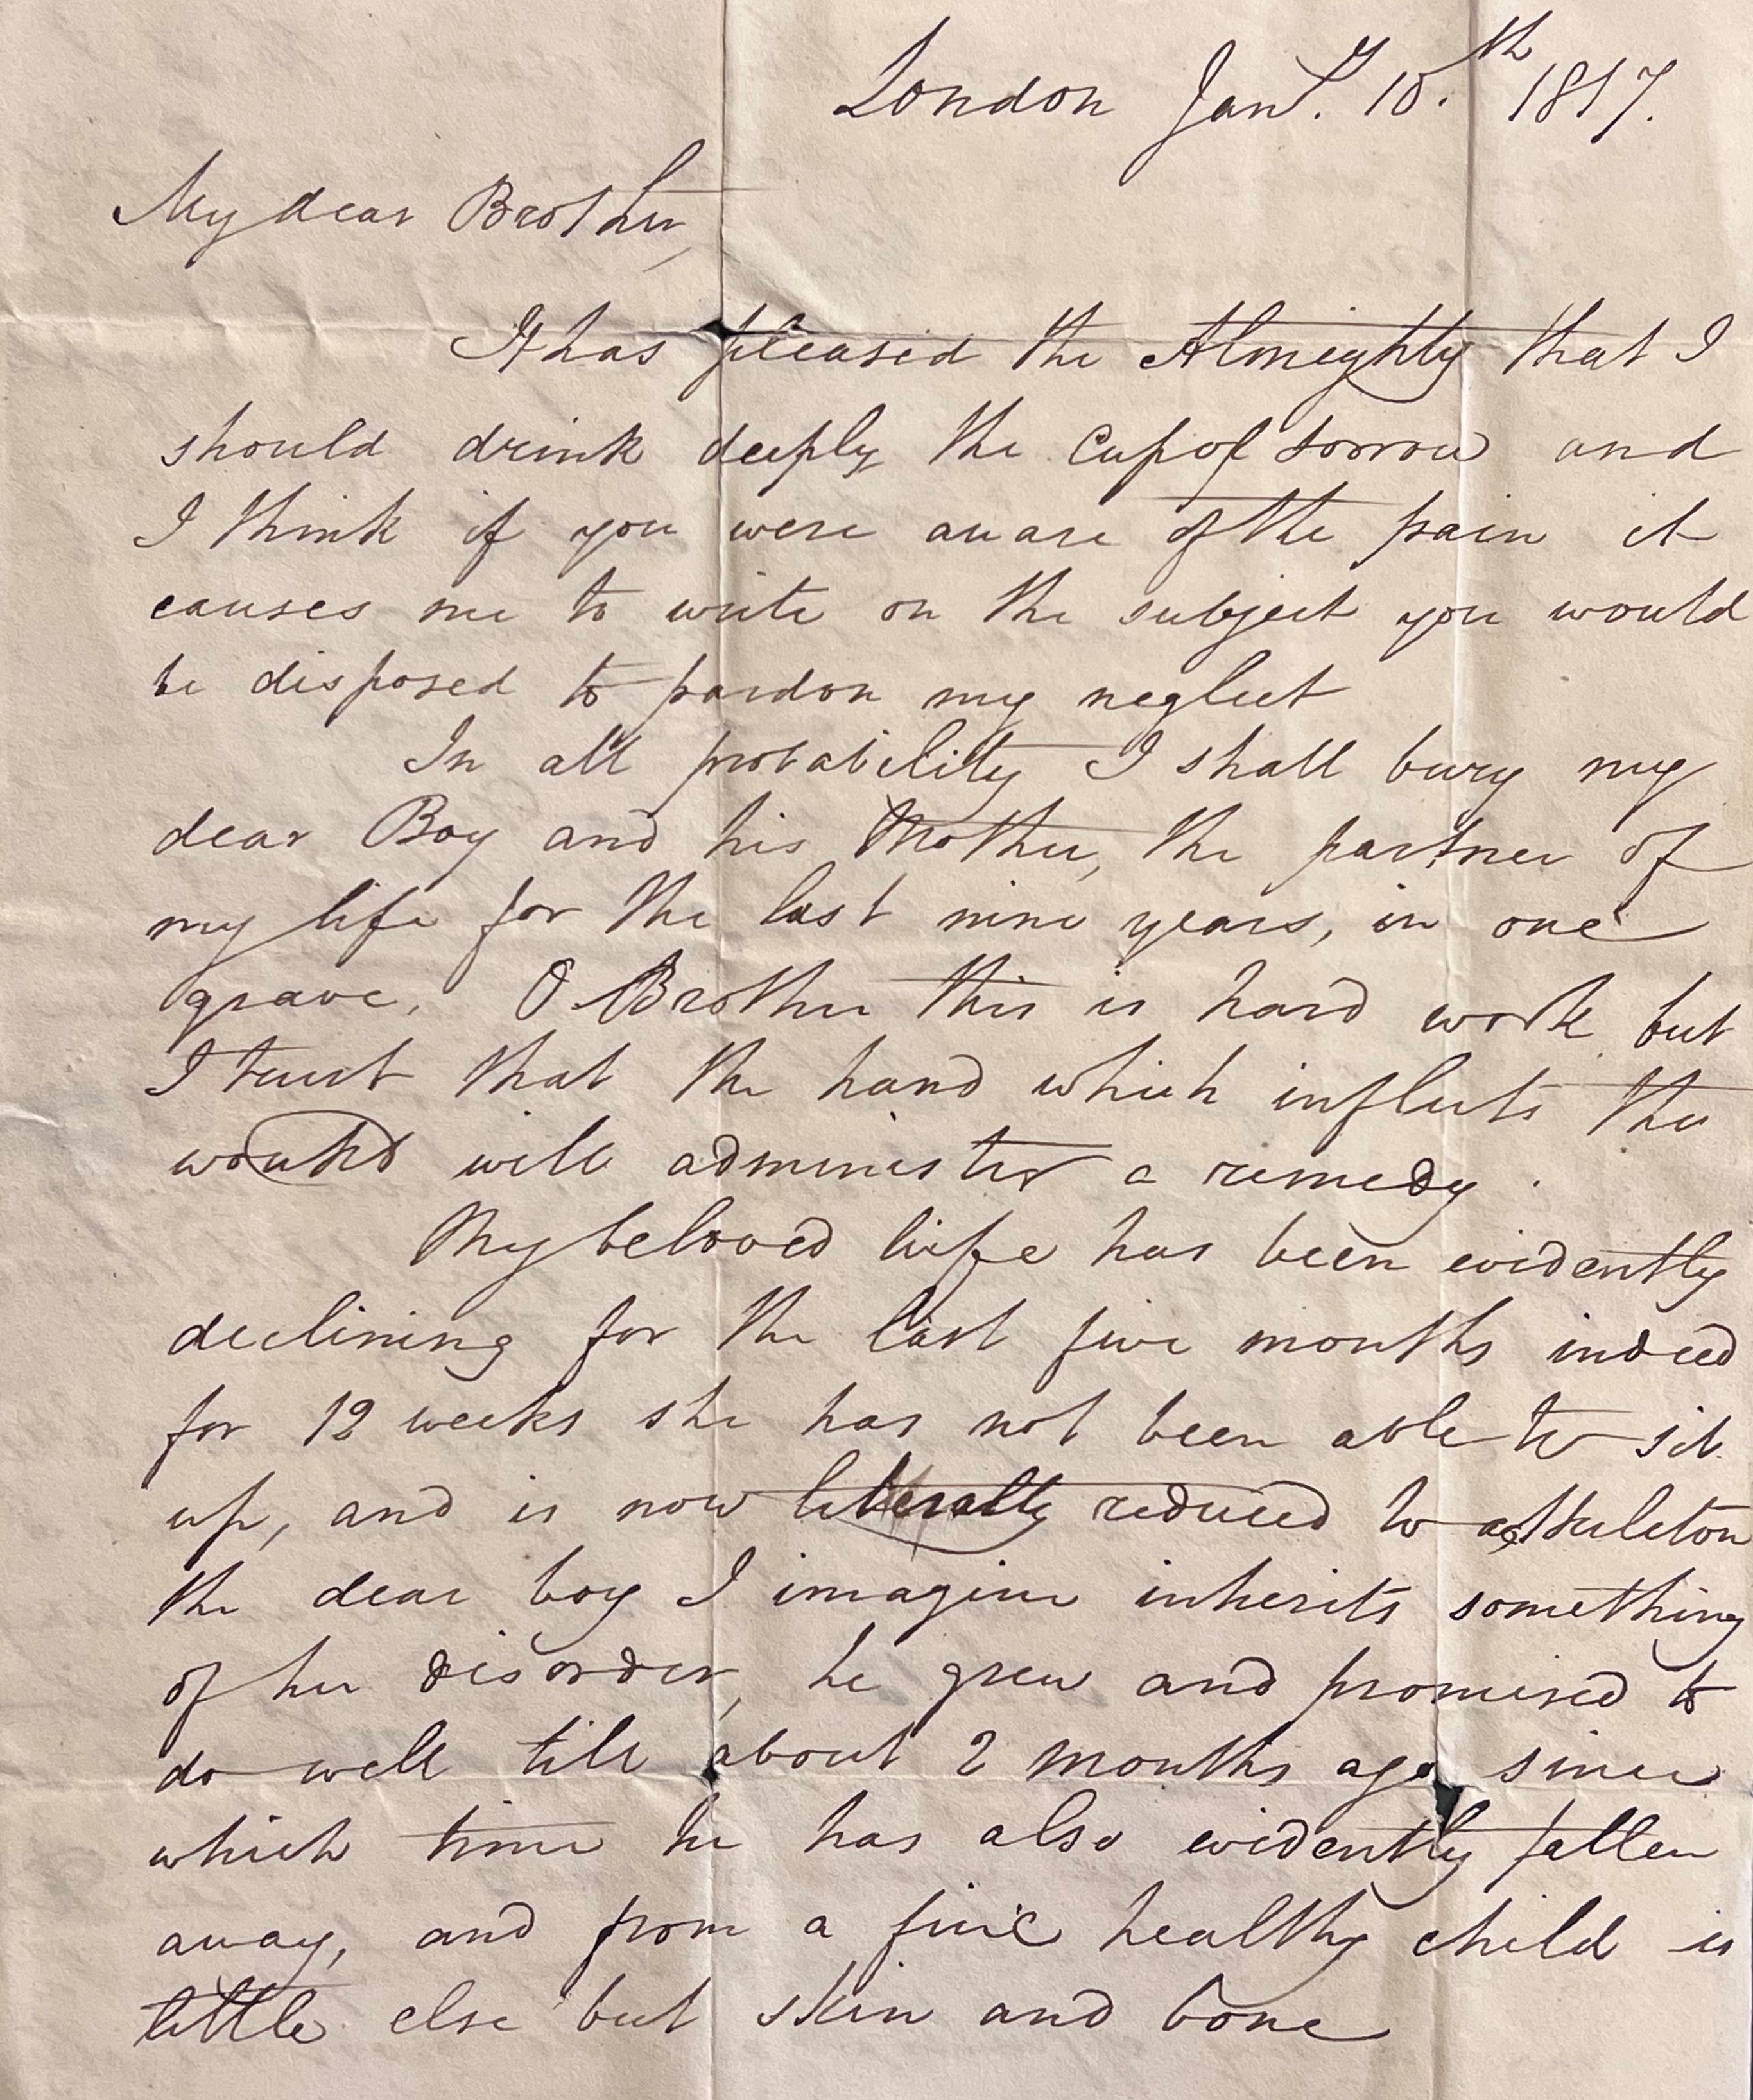 London Jany. 10.th 1817.
My dear Brother,
It has pleased the Almighty that I
should drink deeply the Cup of sorrow and
I think if you were aware of the pain it
causes me to write on the subject you would
be disposed to pardon my neglect
In all probability I shall bury my
dear Boy and his Mother, the partner of
my life for the last nine years, in one
grave. O Brother this is hard work but
I trust that the hand which inflicts the
wound will administer a remedy.
My beloved wife has been evidently
declining for the last five months indeed
for 12 weeks she has not been able to sit
up, and is now literally reduced to a skeleton
the dear boy I imagine inherits something
of her disorder, he grew and promised to
do well till about 2 months ago since
which time he has also evidently fallen
away, and from a fine healthy child is
little else but skin and bone